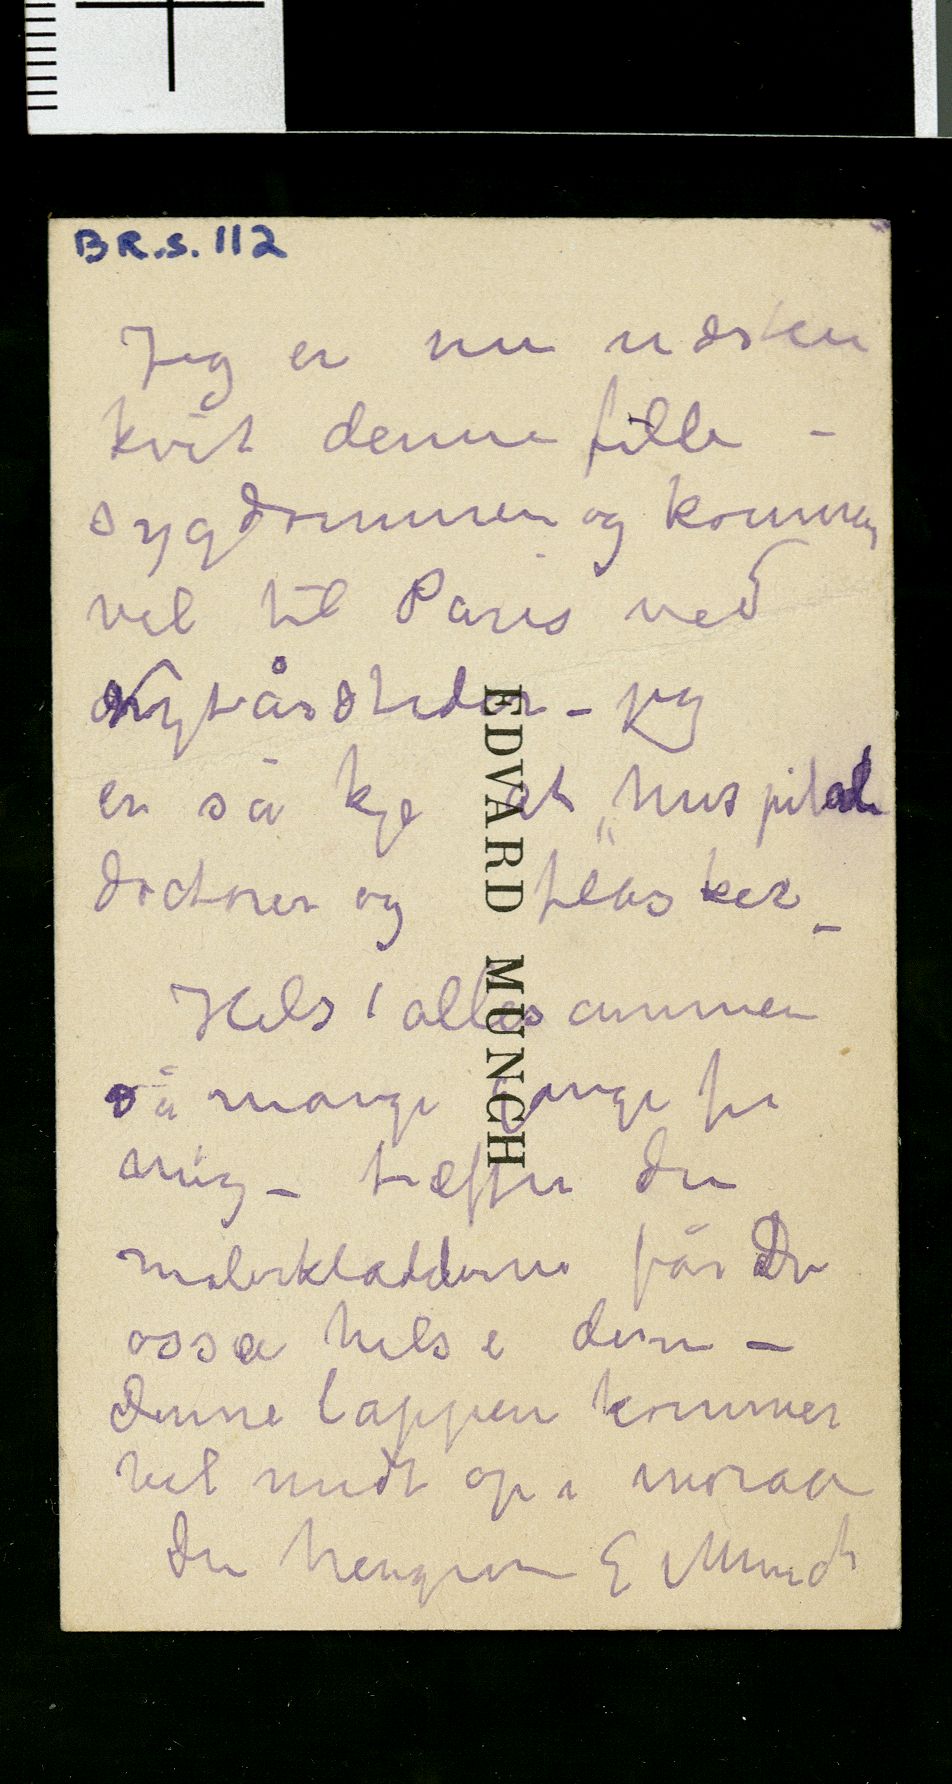 BR.S. 112
Jeg er nu næsten
kvit denne fille -
sygdommen og kommer
vel til Paris ved
Nytårstider - jeg
er så kje at hospital
doctorer og flasker -
Hels allesammen
så mange gange fra
mig - træffer du
malerkladderne får Du
osse hilse dem -
Denne lappen kommer
vel midt op i moraa
Din hengivne E Munch
EDVARD MUNCH